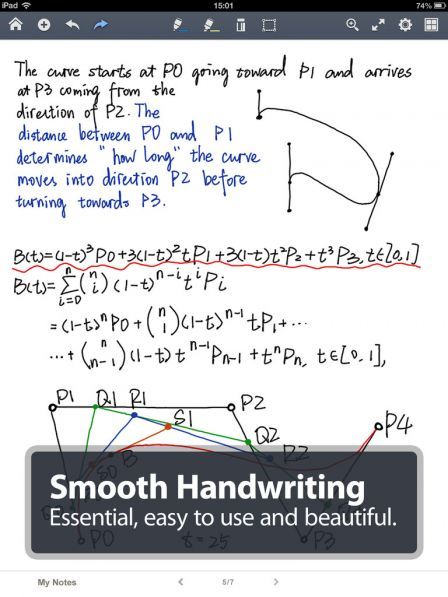 iPad 15:01 74%
The curve starts at P0 going toward P1 and arrives
at P3 coming from the
direction of P2. The
distance between P0 and P1
determines "how long" the curve
moves into direction P2 before
turning towards P3.
B(t)=(1-t)³P0+3(1-t)²tP₁+3(1-t)t²P₂+t³P₃, t∈[0,1]
B(t)=∑ⁿᵢ₌₀(ⁿᵢ)(1-t)ⁿ⁻ⁱtⁱPᵢ
=(1-t)ⁿP0+(ⁿ₁)(1-t)ⁿ⁻¹tP₁+⋯
⋯+(ⁿₙ₋₁)(1-t)tⁿ⁻¹Pₙ₋₁+tⁿPₙ, t∈[0,1],
P1 Q1 R1 S1 P2
Q2
P4
B R2
S0
Smooth Handwriting
Essential, easy to use and beautiful.
P0 t=25 P3
My Notes 5/7